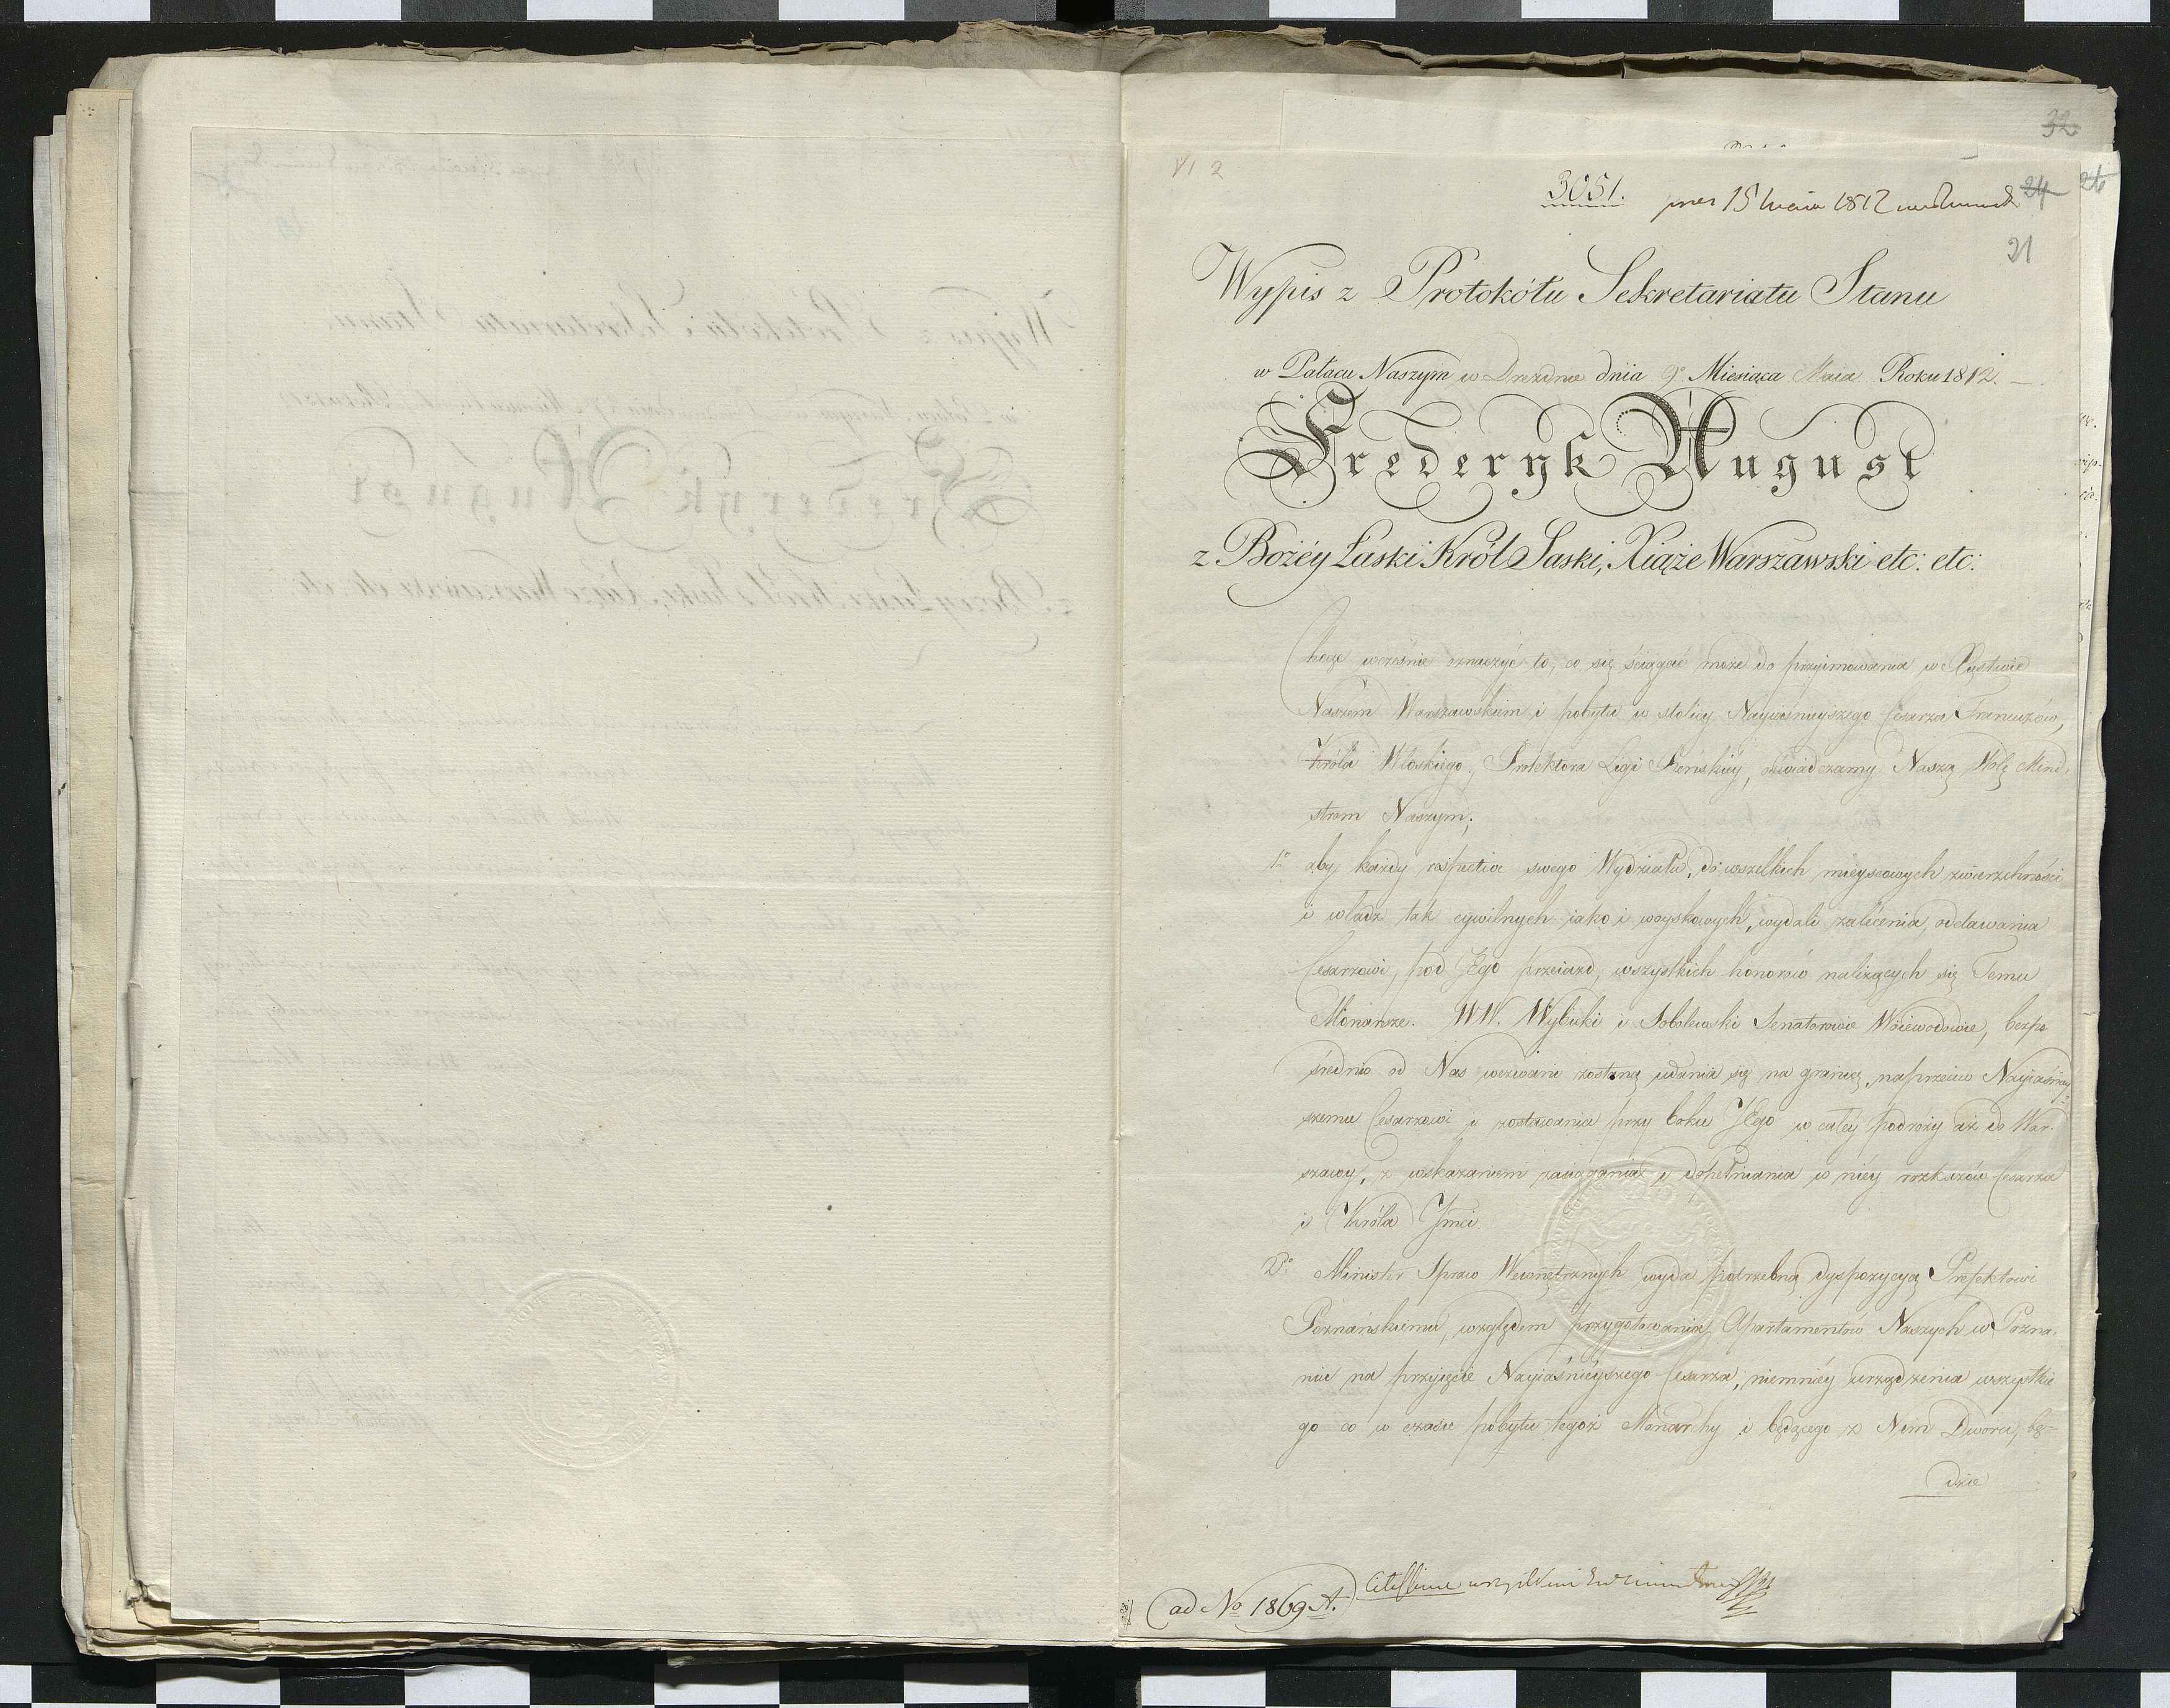 32
VI 2
3051.
1812
24 26
21
Wypis z Protokółu Sekretariatu Stanu
w Pałacu Naszym w Dreznie dnia 9º Miesiąca Maia Roku 1812.
Frederyk August
z Bożéy Łaski Król Saski, Xiąże Warszawski etc: etc:
Chcąc wcześnie oznaczyć to, co się ściągać może do przyimowania w Xięstwie
Naszém Warszawskim i pobytu w stolicy Nayiaśnieyszego Cesarza Francuzów,
Króla Włoskiego, Protektora Ligi Reńskiéy, oświadczamy Naszą Wolę Mini-
strom Naszym;
1º aby każdy respective swego Wydziału, do wszelkich mieyscowych zwierzchności
i władz tak cywilnych iako i woyskowych, wydali zalecenia, oddawania
Cesarzowi, pod Jego przeiazd, wszystkich honorów należących się Temu
Monarsze. WW. Wybicki i Sobolewski Senatorowie Woiewodowie, bezpo
średnio od Nas wezwani zostaną udania się na granicę, naprzeciw Nayiaśniey-
szemu Cesarzowi i zostawania przy boku JEgo w całéy podróży aż do War-
szawy, z wskazaniem zasiągania i dopełniania w niéy rozkazów Cesarza
i Króla Jmci.
2º Minister Spraw Wewnętrznych wyda potrzebną dyspozycyą Prefektowi
Poznańskiemu, względem przygotowania Apartamentów Naszych w Pozna-
niu na przyięcie Nayiaśnieyszego Cesarza, niemniéy urządzenia wszystkie
go co w czasie pobytu tegoż Monarchy i będącego z Nim Dworu, bę-
dzie
Citissime
(ad Nº 1869 A.)